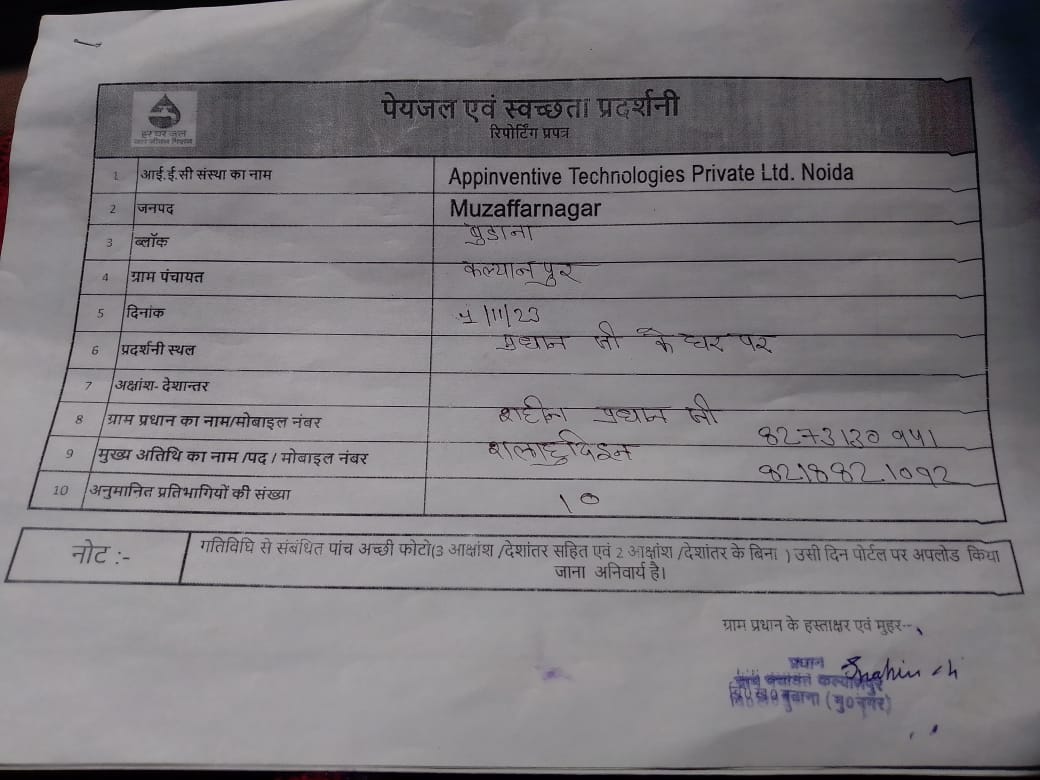 हर घर जल
जल जीवन मिशन
पेयजल एवं स्वच्छता प्रदर्शनी
रिपोर्टिंग प्रपत्र
1 आई.ई.सी संस्था का नाम Appinventive Technologies Private Ltd. Noida
2 जनपद Muzaffarnagar
3 ब्लॉक बुडाना
4 ग्राम पंचायत कल्यानपुर
5 दिनांक /11/23
6 प्रदर्शनी स्थल प्रधान जी के घर पर
7 अक्षांश- देशान्तर
8 ग्राम प्रधान का नाम/मोबाइल नंबर शाहीन प्रधान जी 8273130941
9 मुख्य अतिथि का नाम /पद / मोबाइल नंबर 8218821092
10 अनुमानित प्रतिभागियों की संख्या 10
नोट :- गतिविधि से संबंधित पांच अच्छी फोटो(3 आक्षांश /देशांतर सहित एवं 2 आक्षांश /देशांतर के बिना ) उसी दिन पोर्टल पर अपलोड किया
जाना अनिवार्य है।
ग्राम प्रधान के हस्ताक्षर एवं मुहर--
प्रधान Shahin
ग्राम पंचायत कल्यानपुर
वि० ख० बुढाना (मु०नगर)